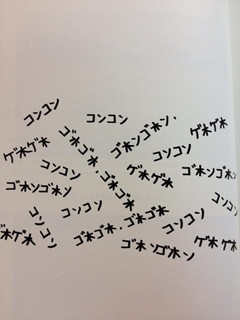 コンコン
コンコン
ゴホンゴホン、
ゲホゲホ
ゴホゴホ、ゴホゴホ
ゲホゲホ
コンコン
コンコン
ゲホゲホ
ゴホンゴホン
ゴホンゴホン
コンコン
コンコン
コンコン
ゴホゴホ、ゴホゴホ
コンコン
ゲホゲホ
ゴホンゴホン
ゲホゲホ